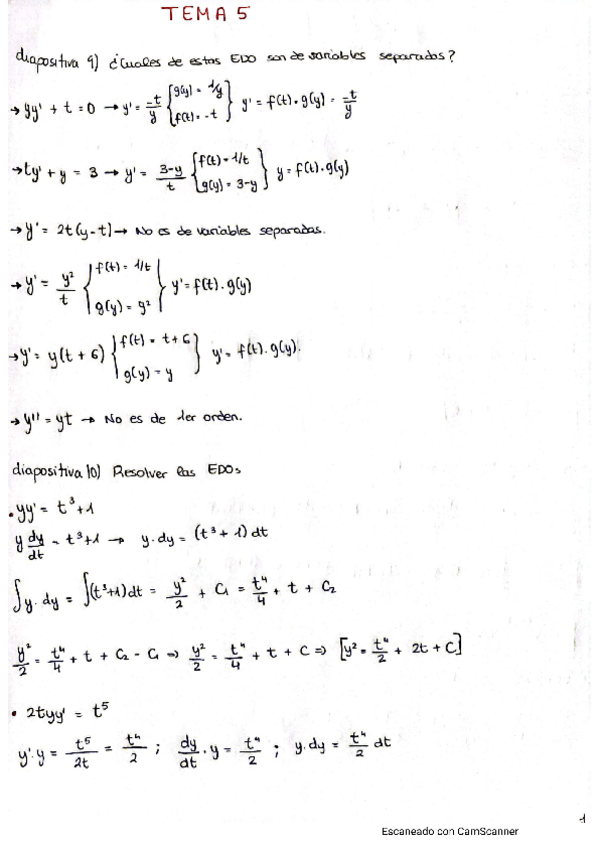 TEMA 5
diapositiva 9) ¿Cuales de estas EDO son de variables separadas?
→ yy' + t = 0 → y' = -t/y { g(y) = 1/y f(t) = -t } y' = f(t) · g(y) = -t/y
→ ty' + y = 3 → y' = 3-y/t { f(t) = 1/t g(y) = 3-y } y = f(t) · g(y)
→ y' = 2t(y-t) → No es de variables separadas.
→ y' = y²/t { f(t) = 1/t g(y) = y² } y' = f(t) · g(y)
→ y' = y(t+6) { f(t) = t+6 g(y) = y } y' = f(t) · g(y).
→ y'' = yt → No es de 1er orden.
diapositiva 10) Resolver las EDOs
• yy' = t³+1
y dy/dt = t³+1 → y·dy = (t³+1) dt
∫y·dy = ∫(t³+1)dt = y²/2 + C₁ = t⁴/4 + t + C₂
y²/2 = t⁴/4 + t + C₂ - C₁ ⇒ y²/2 = t⁴/4 + t + C ⇒ [y² = t⁴/2 + 2t + C]
• 2tyy' = t⁵
y'·y = t⁵/2t = t⁴/2 ; dy/dt · y = t⁴/2 ; y·dy = t⁴/2 dt
1
Escaneado con CamScanner